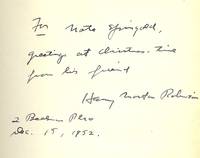 For Nate Spingold,
greetings at Christmas-time
from his friend
Henry Morton Robinson
2 Beekman Place
Dec. 15, 1952.